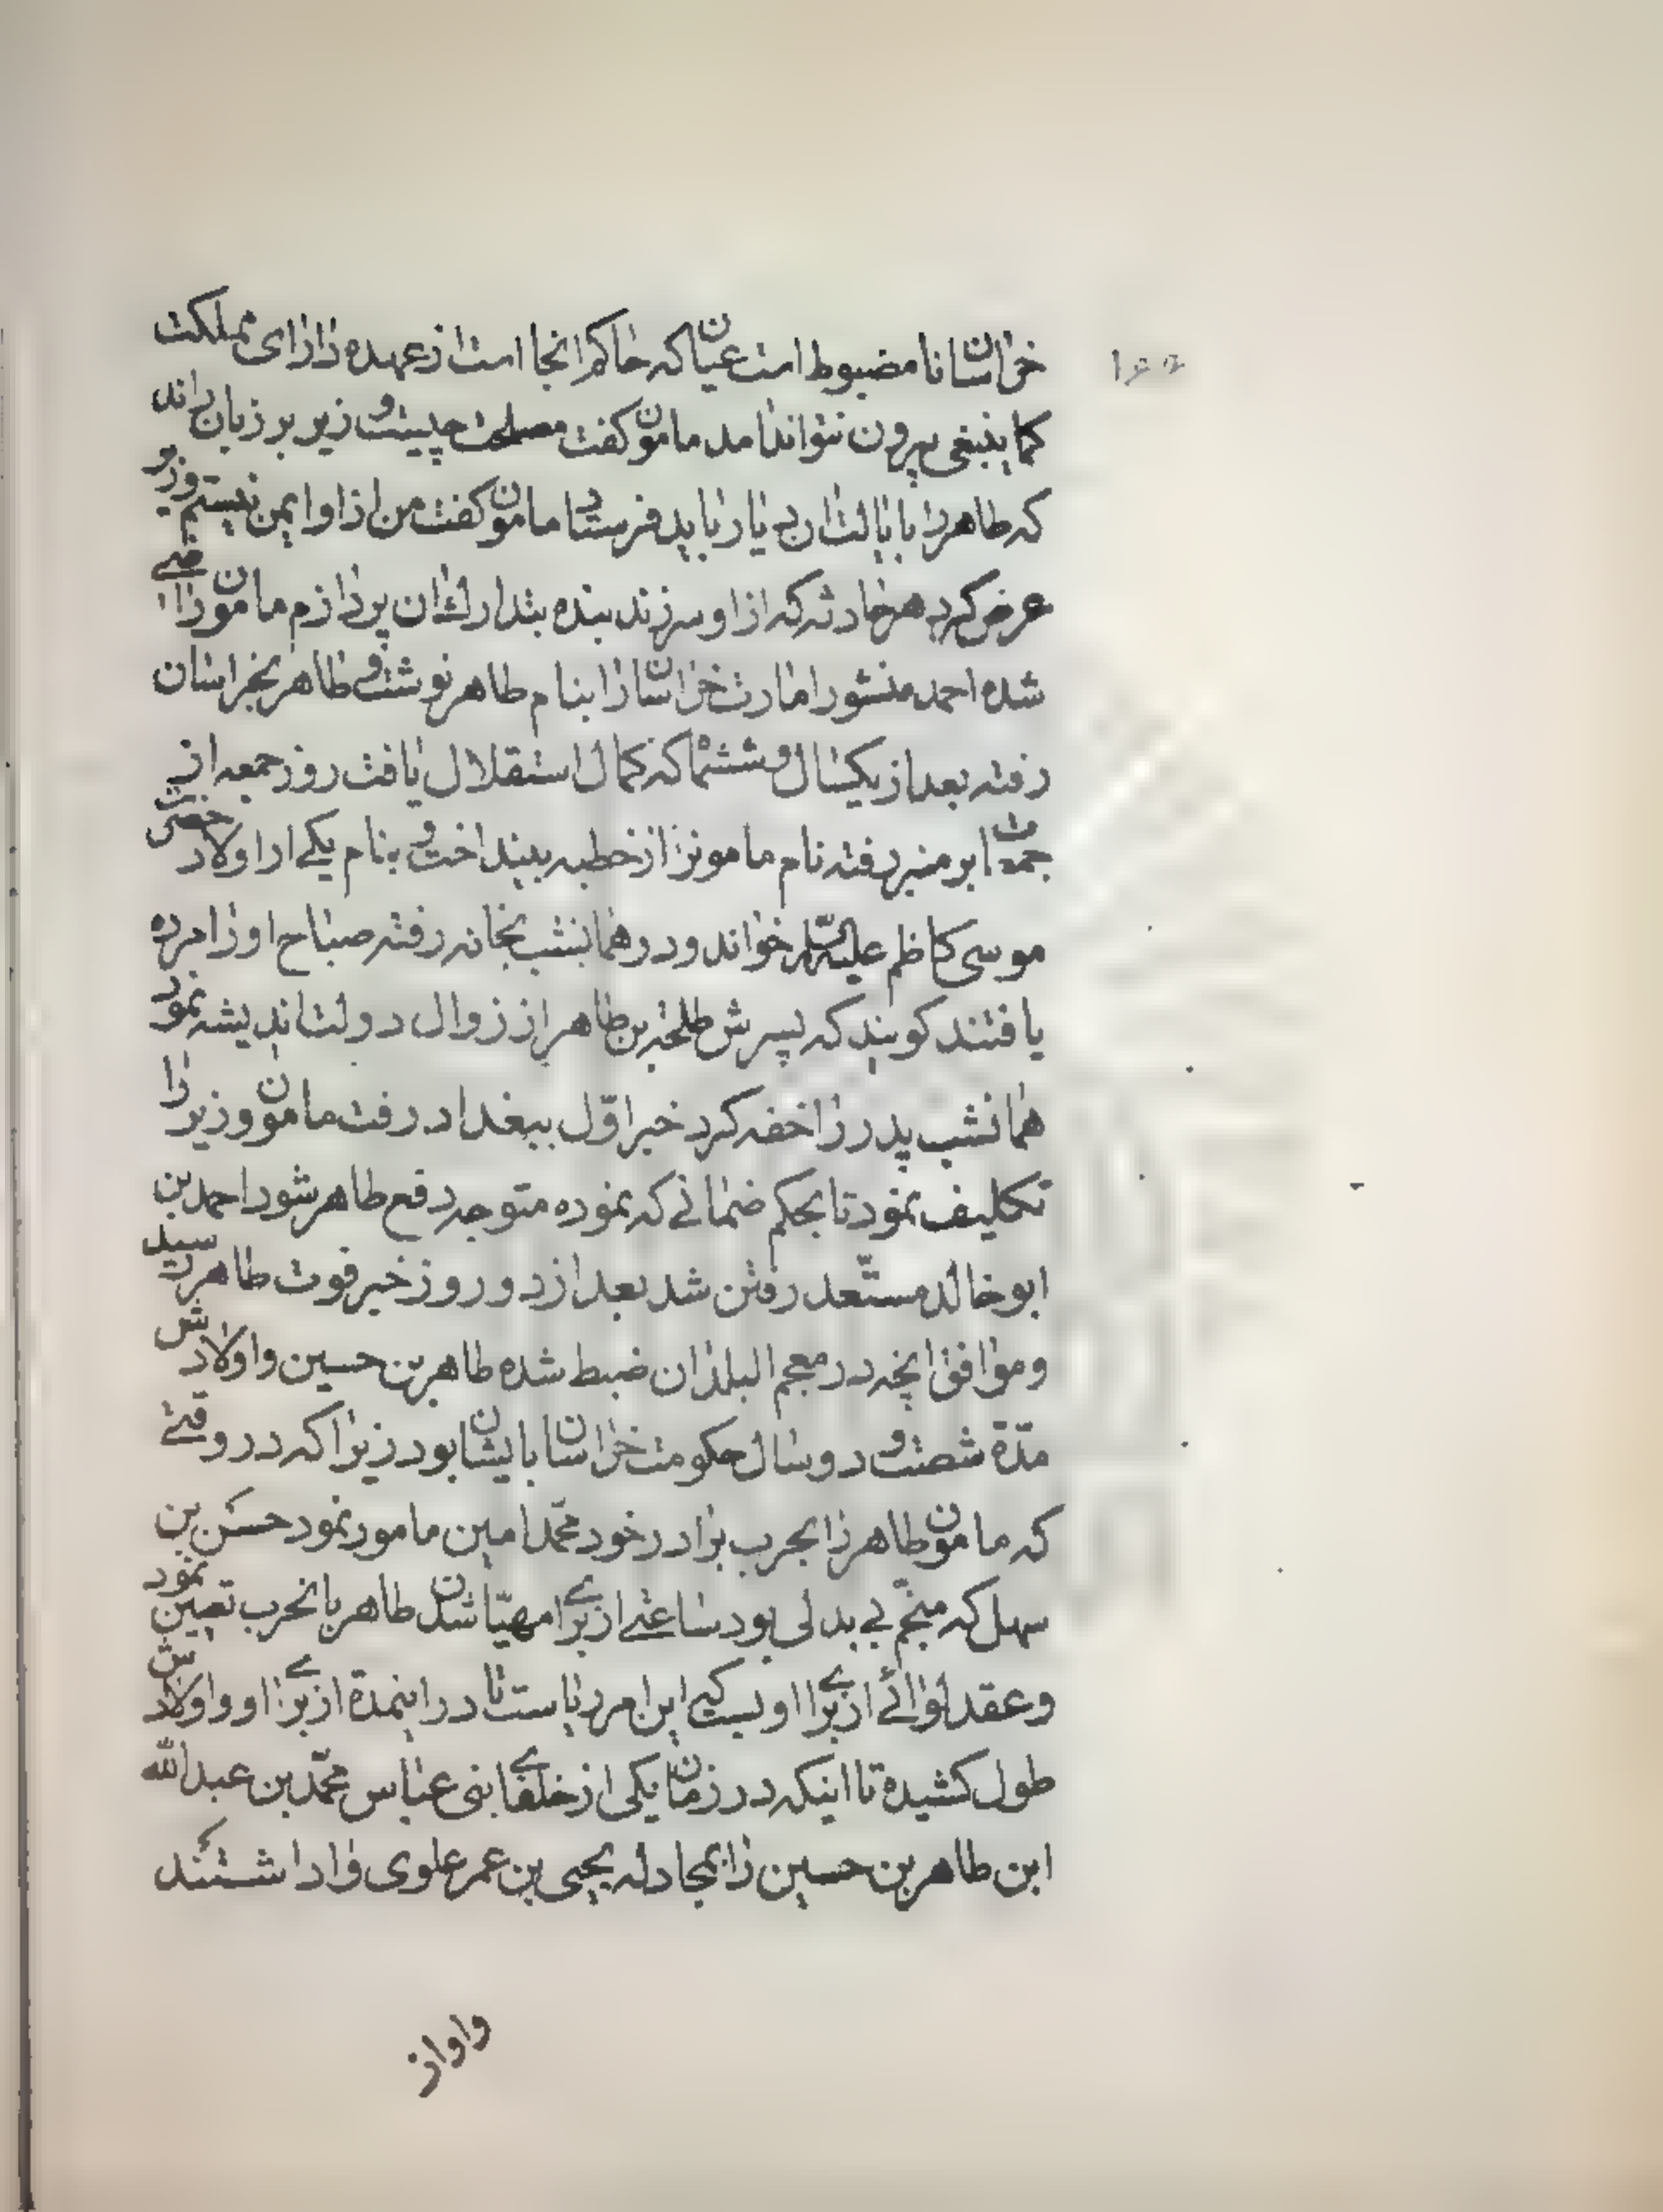 خراسان نامضبوط است عیان که حاکم انجا است از عهده دارای مملکت
کما ینبغی بیرون نتواند امد مامون کفت مصلحت چیست و زیر بر زبان راند
که طاهر را با یالت ان دیار باید فرستاد مامون کفت من از او ایمن نیستم وزیر
عرض کرد هر حادثه که از او سرزند بنده بتدارک ان پردازم مامون راضی
شده احمد منشور امارت خراسان را بنام طاهر نوشت و طاهر بخراسان
رفته بعد از یکسال و ششماه که کمال استقلال یافت روز جمعه از
جمعات بر منبر رفته نام مامونرا از خطبه بینداخت و بنام یکی از اولاد حضرت
موسی کاظم علیه السلام خواند و در همانشب بخانه رفته صباح او را مرده
یافتند کویند که پسرش طلحة بن طاهر از زوال دولت اندیشه نمود
همانشب پدر را خفه کرد خبر اوّل ببغداد رفت مامون وزیر را
تکلیف نمود تا بحکم ضمانی که نموده متوجه دفع طاهر شود احمد بن
ابو خالد مستعد رفتن شد بعد از دو روز خبر فوت طاهر رسید
و موافق انچه در معجم البلدان ضبط شده طاهر بن حسین و اولادش
مدّة شصت و دو سال حکومت خراسان با یشان بود زیرا که در وقتی
که مامون طاهر را بحرب برادر خود محمّد امین مامور نمود حسن بن
سهل که منجّم بی بدلی بود ساعتی از برای مهیّا شدن طاهر بانحرب تعیین نمود
و عقد لوائی از برای او بست که این امر ریاست تا در اینمدة از برای او و اولادش
طول کشیده تا اینکه در زمان یکی از خلفای بنی عباس محمّد بن عبد الله
ابن طاهر بن حسین را بمجادله یحیی بن عمر علوی وا داشتند
و او از